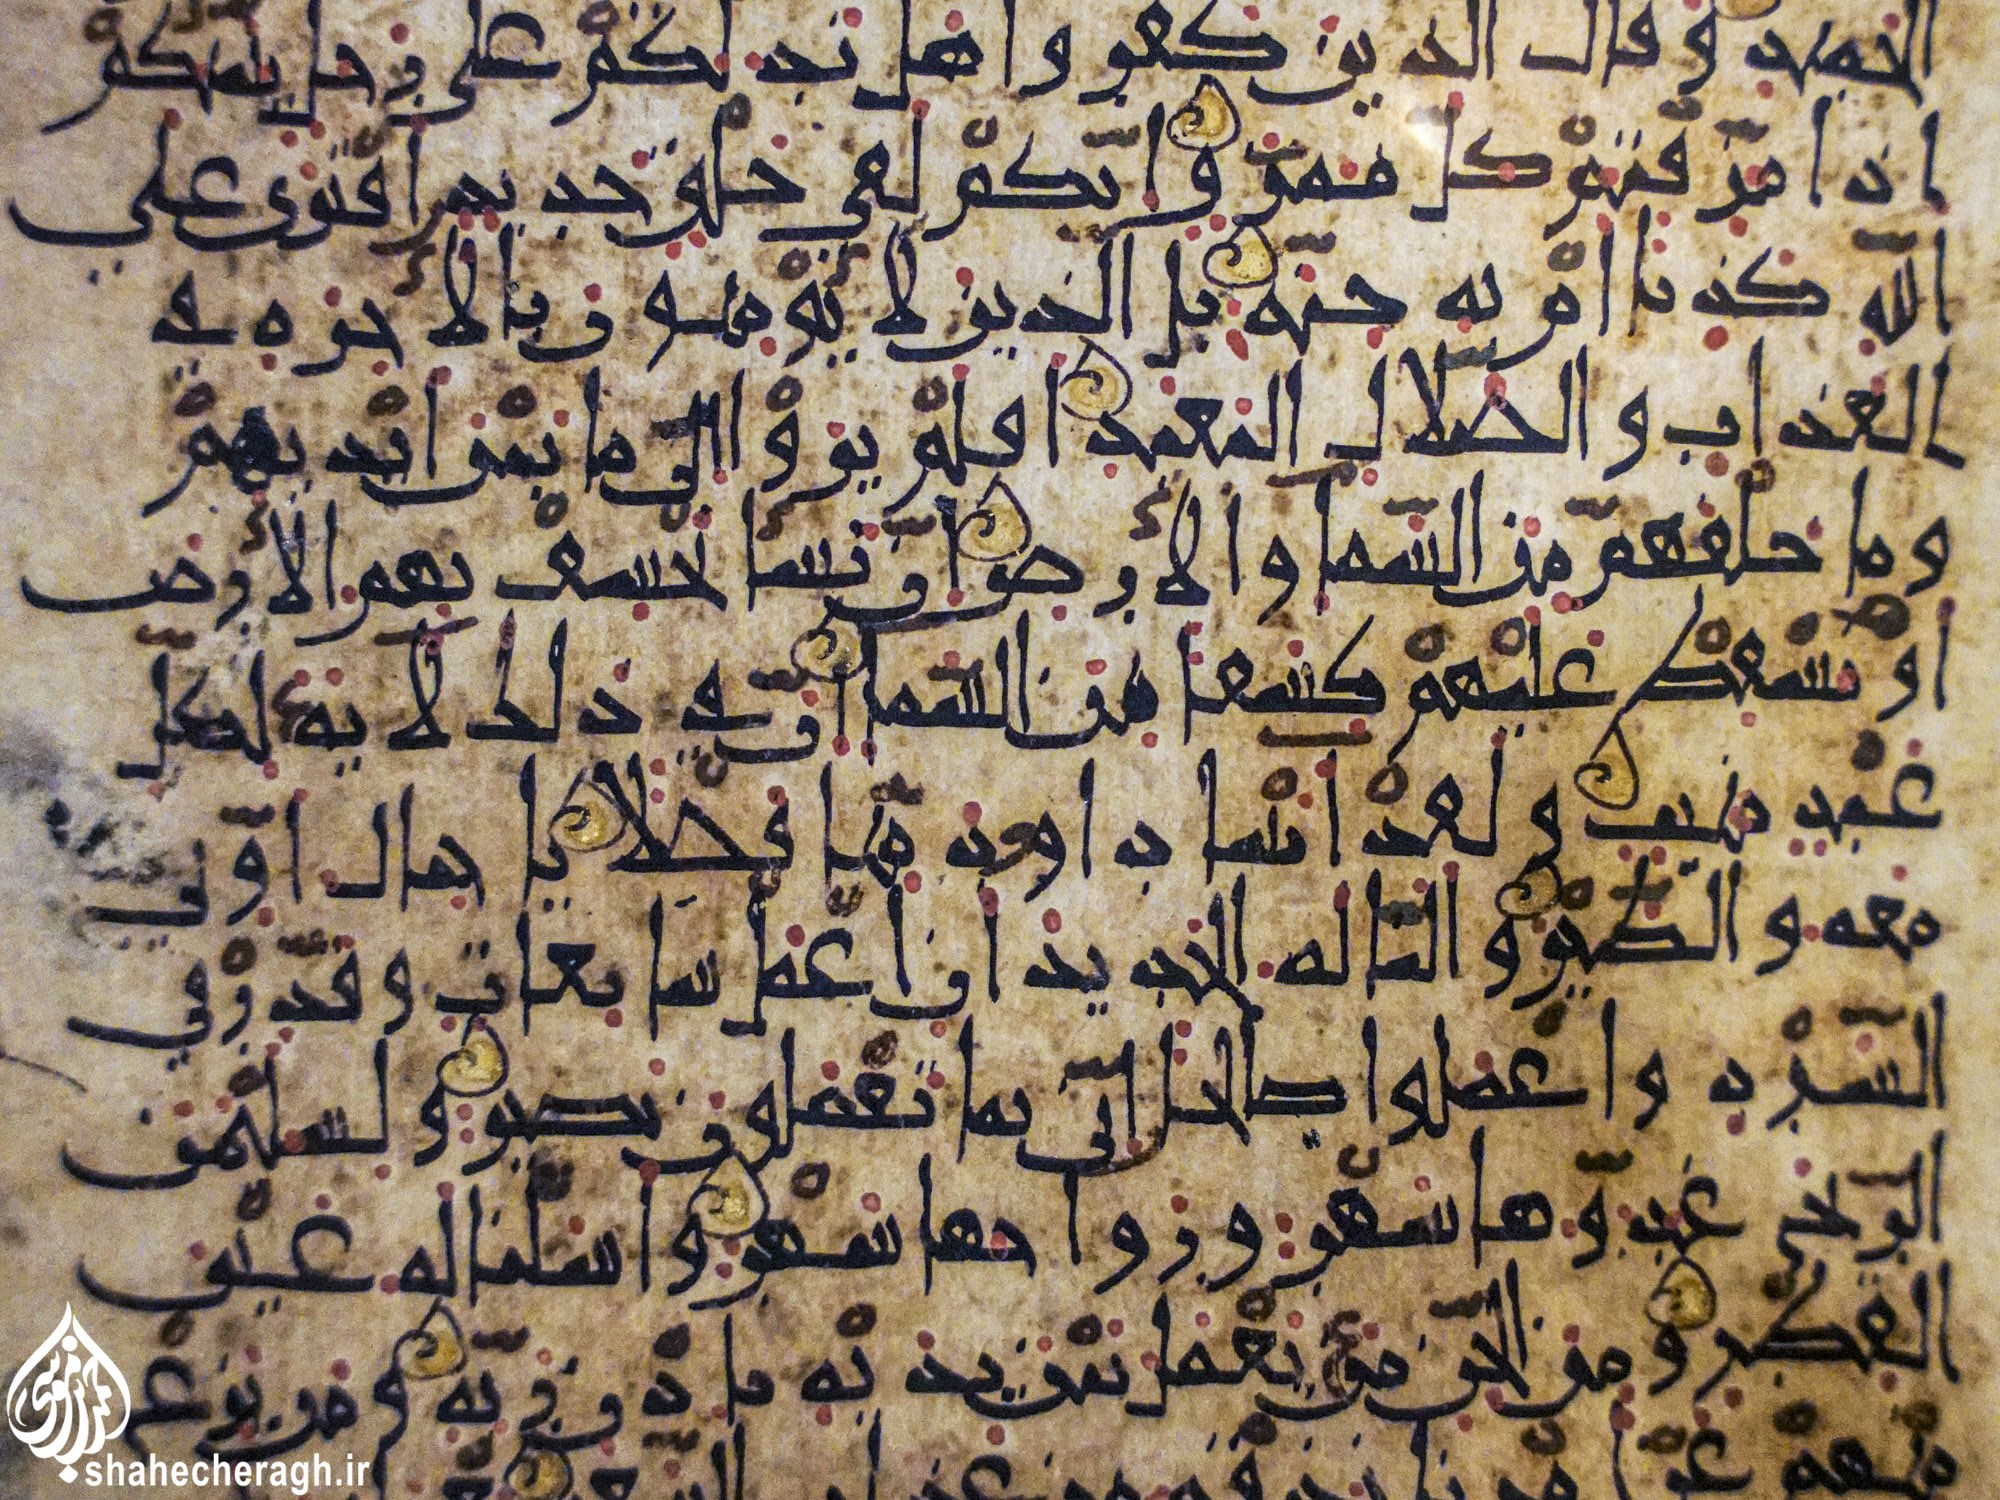 الحميد وقال الذين كفروا هل ندلكم على رجل ينبئكم
اذا مزقتم كل ممزق انكم لفي خلق جديد افترى على
الله كذبا ام به جنة بل الذين لا يؤمنون بالاخرة في
العذاب والضلال البعيد افلم يروا الى ما بين ايديهم
وما خلفهم من السما والارض ان نشا نخسف بهم الارض
او نسقط عليهم كسفا من السما ان في ذلك لاية لكل
عبد منيب ولقد اتينا داود منا فضلا يا جبال اوبي
معه والطير والنا له الحديد ان اعمل سابغات وقدر في
السرد واعملوا صالحا اني بما تعملون بصير ولسليمن
الريح غدوها شهر ورواحها شهر واسلنا له عين
القطر ومن الجن من يعمل بين يديه باذن ربه ومن يزغ
منهم عن امرنا نذقه من عذاب السعير
shahecheragh.ir